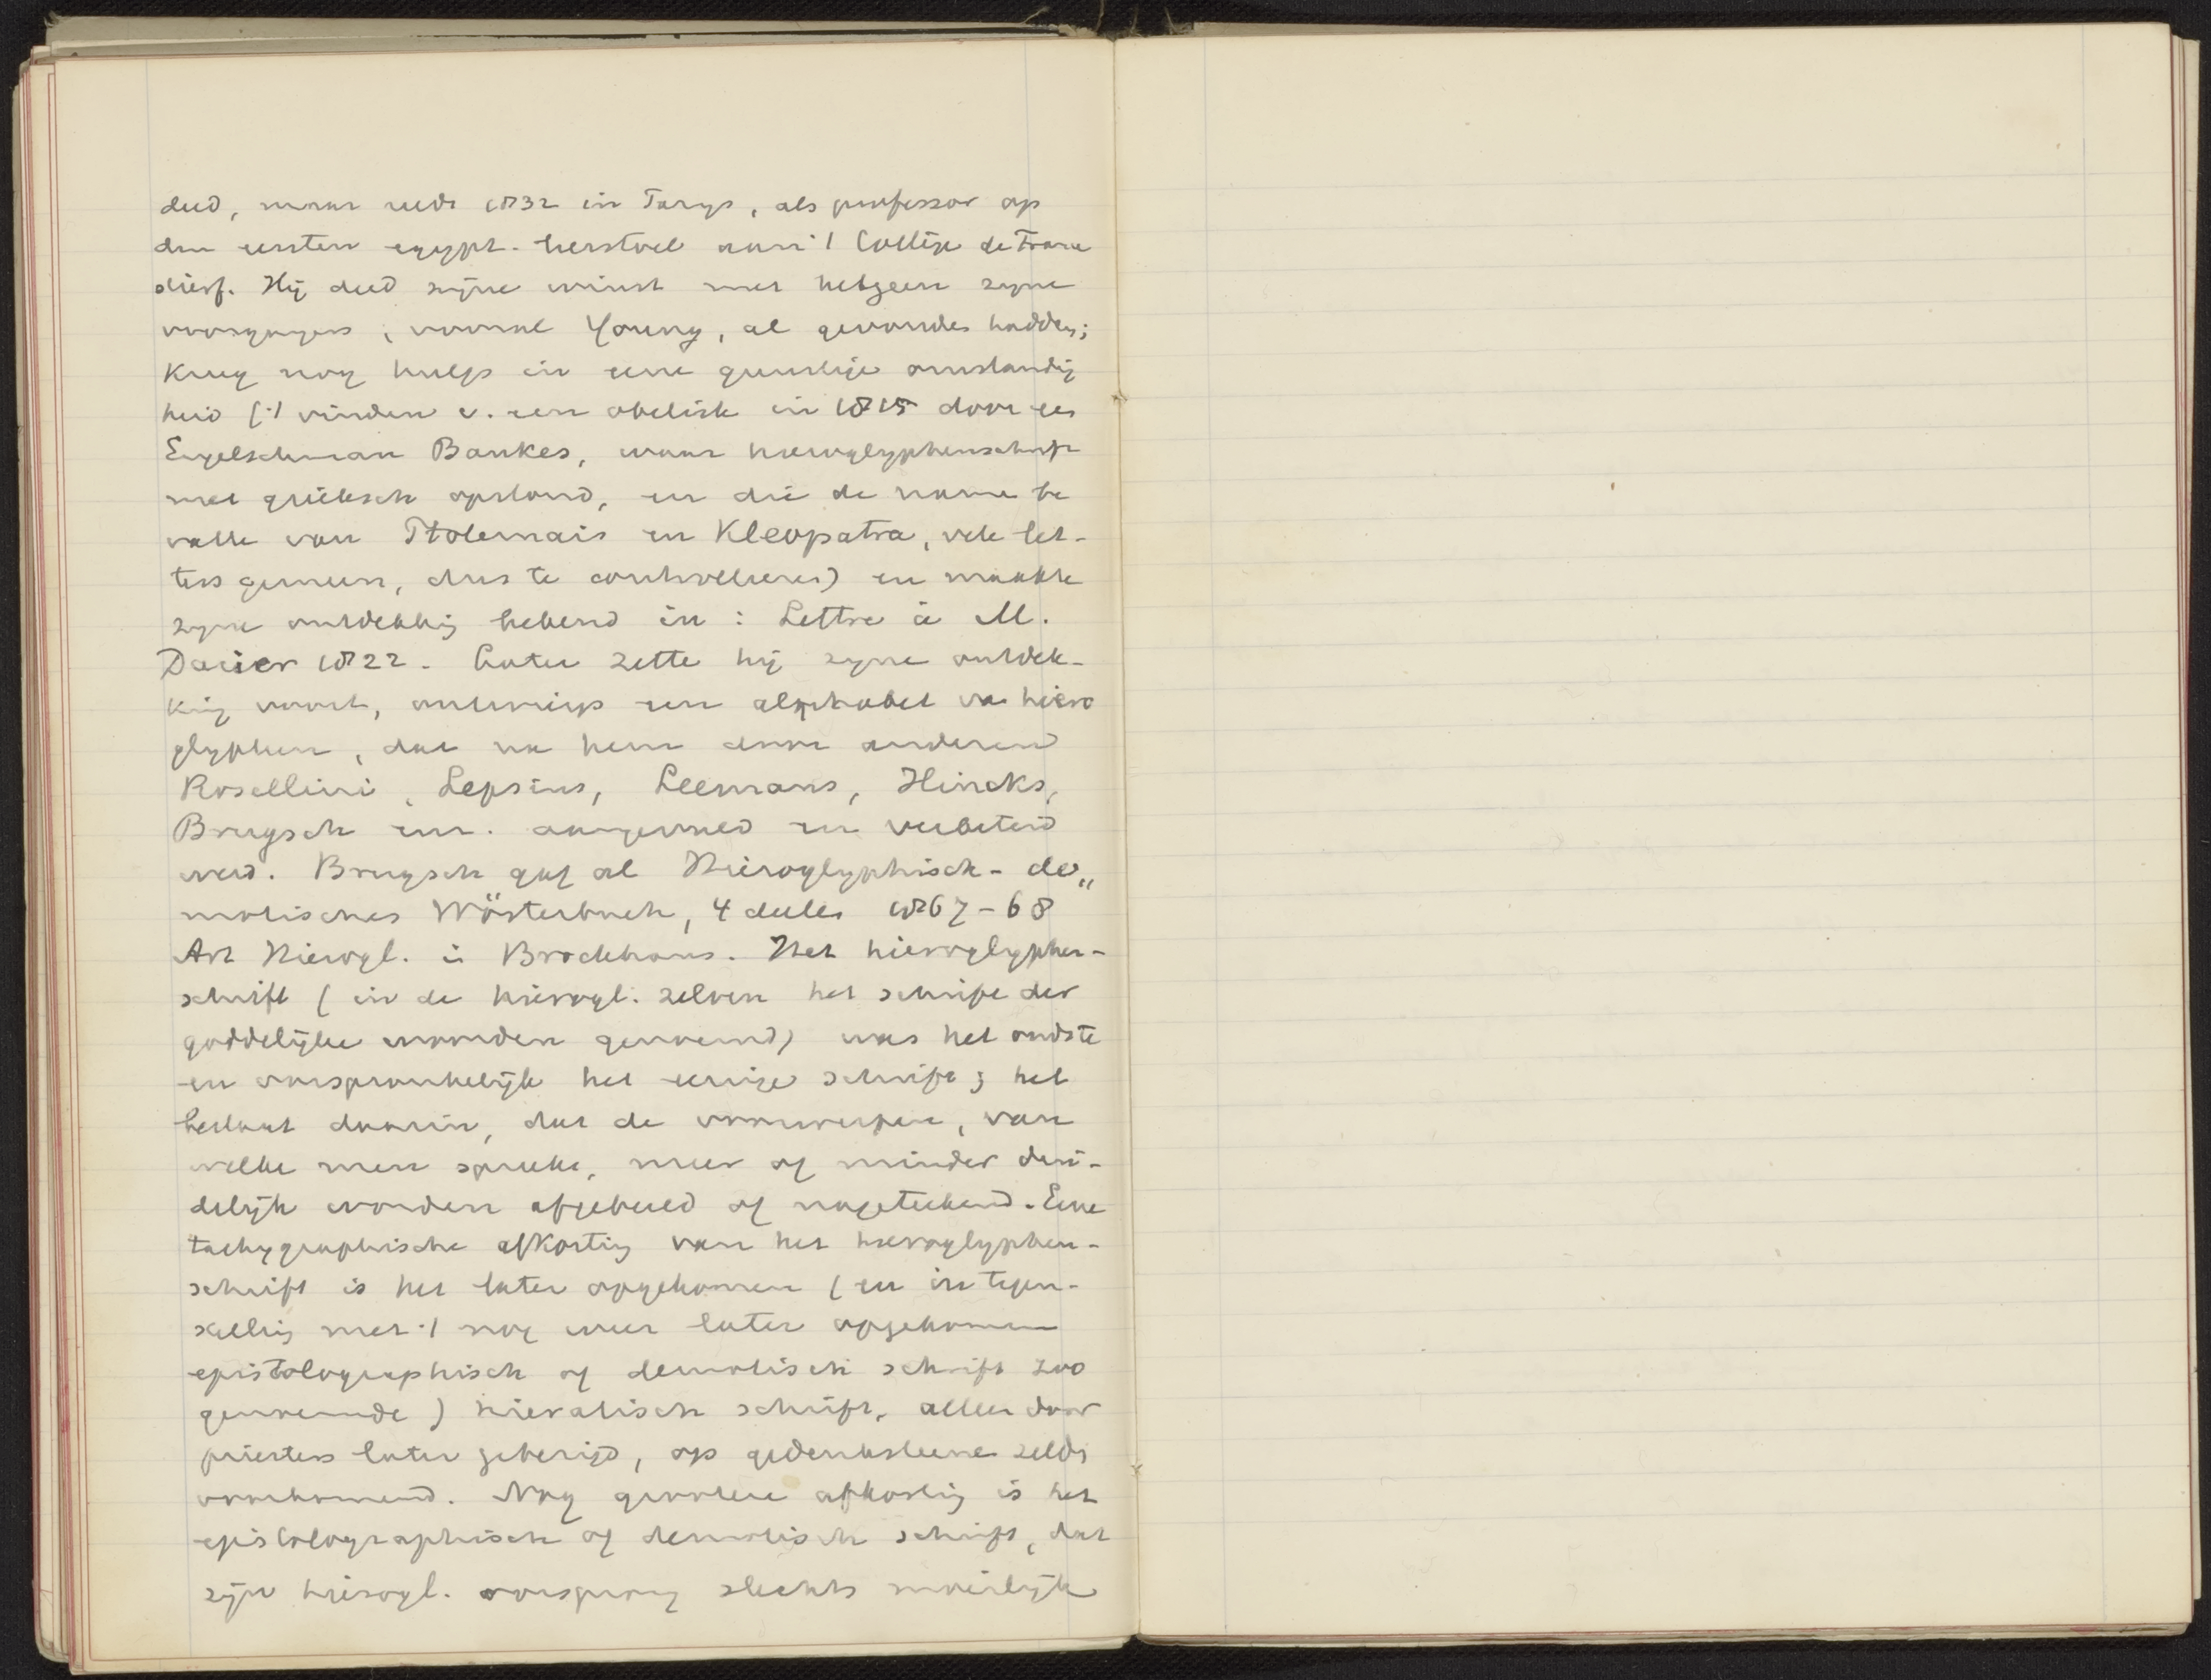 deed, maar reeds 1832 in Parys, als professor op
den eersten egypt. leerstoel aan 't Collège de France
stierf. Hij deed zijne winst met hetgeen zyne
voorgangers, vooral Young, al gevonden hadden;
kreeg nog hulp in eene gunstige omstandig
heid ('t vinden v. een obelisk in 1815 door een
Engelschman Bankes, waar hieroglyphenschrift
met grieksch opstond, en die de name be
vatte van Ptolemais en Kleopatra, vele let-
ters gemeen, dus te controlleeren) en maakte
zyne ontdekking bekend in : Lettre à M.
Dacier 1822. Later zette hij zyne ontdek-
king voort, ontwierp een alphabet van hiero
glyphen, dat na hem door anderen
Rosellini, Lepsius, Leemans, Hincks,
Brugsch enz. aangevuld en verbeterd
werd. Brugsch gaf al Hieroglyphisch - de„
motisches Wörterbuch, 4 deelen 1867-68
Art Hierogl. in Brockhaus. Het hieroglyphen-
schrift (in de hierogl. zelven het schrift der
goddelijke woorden genoemd) was het oudste
en oorspronkelijk het eenige schrift; het
bestaat daarin, dat de voorwerpen, van
welke men spreekt, meer of minder dui-
delijk worden afgebeeld of nageteekend. Eene
tachygraphische afkorting van het hieroglyphen-
schrift is het later opgekomen (en in tegen-
stelling met 't nog weer later opgekomen
epistolographisch of demotisch schrift zoo
genoemde) hieratisch schrift, alleen door
priesters later gebezigd, op gedenksteenen zelden
voorkomend. Nog grootere afkorting is het
epistolographisch of demotisch schrift, dat
zijn hierogl. oorsprong slechts moeilijk